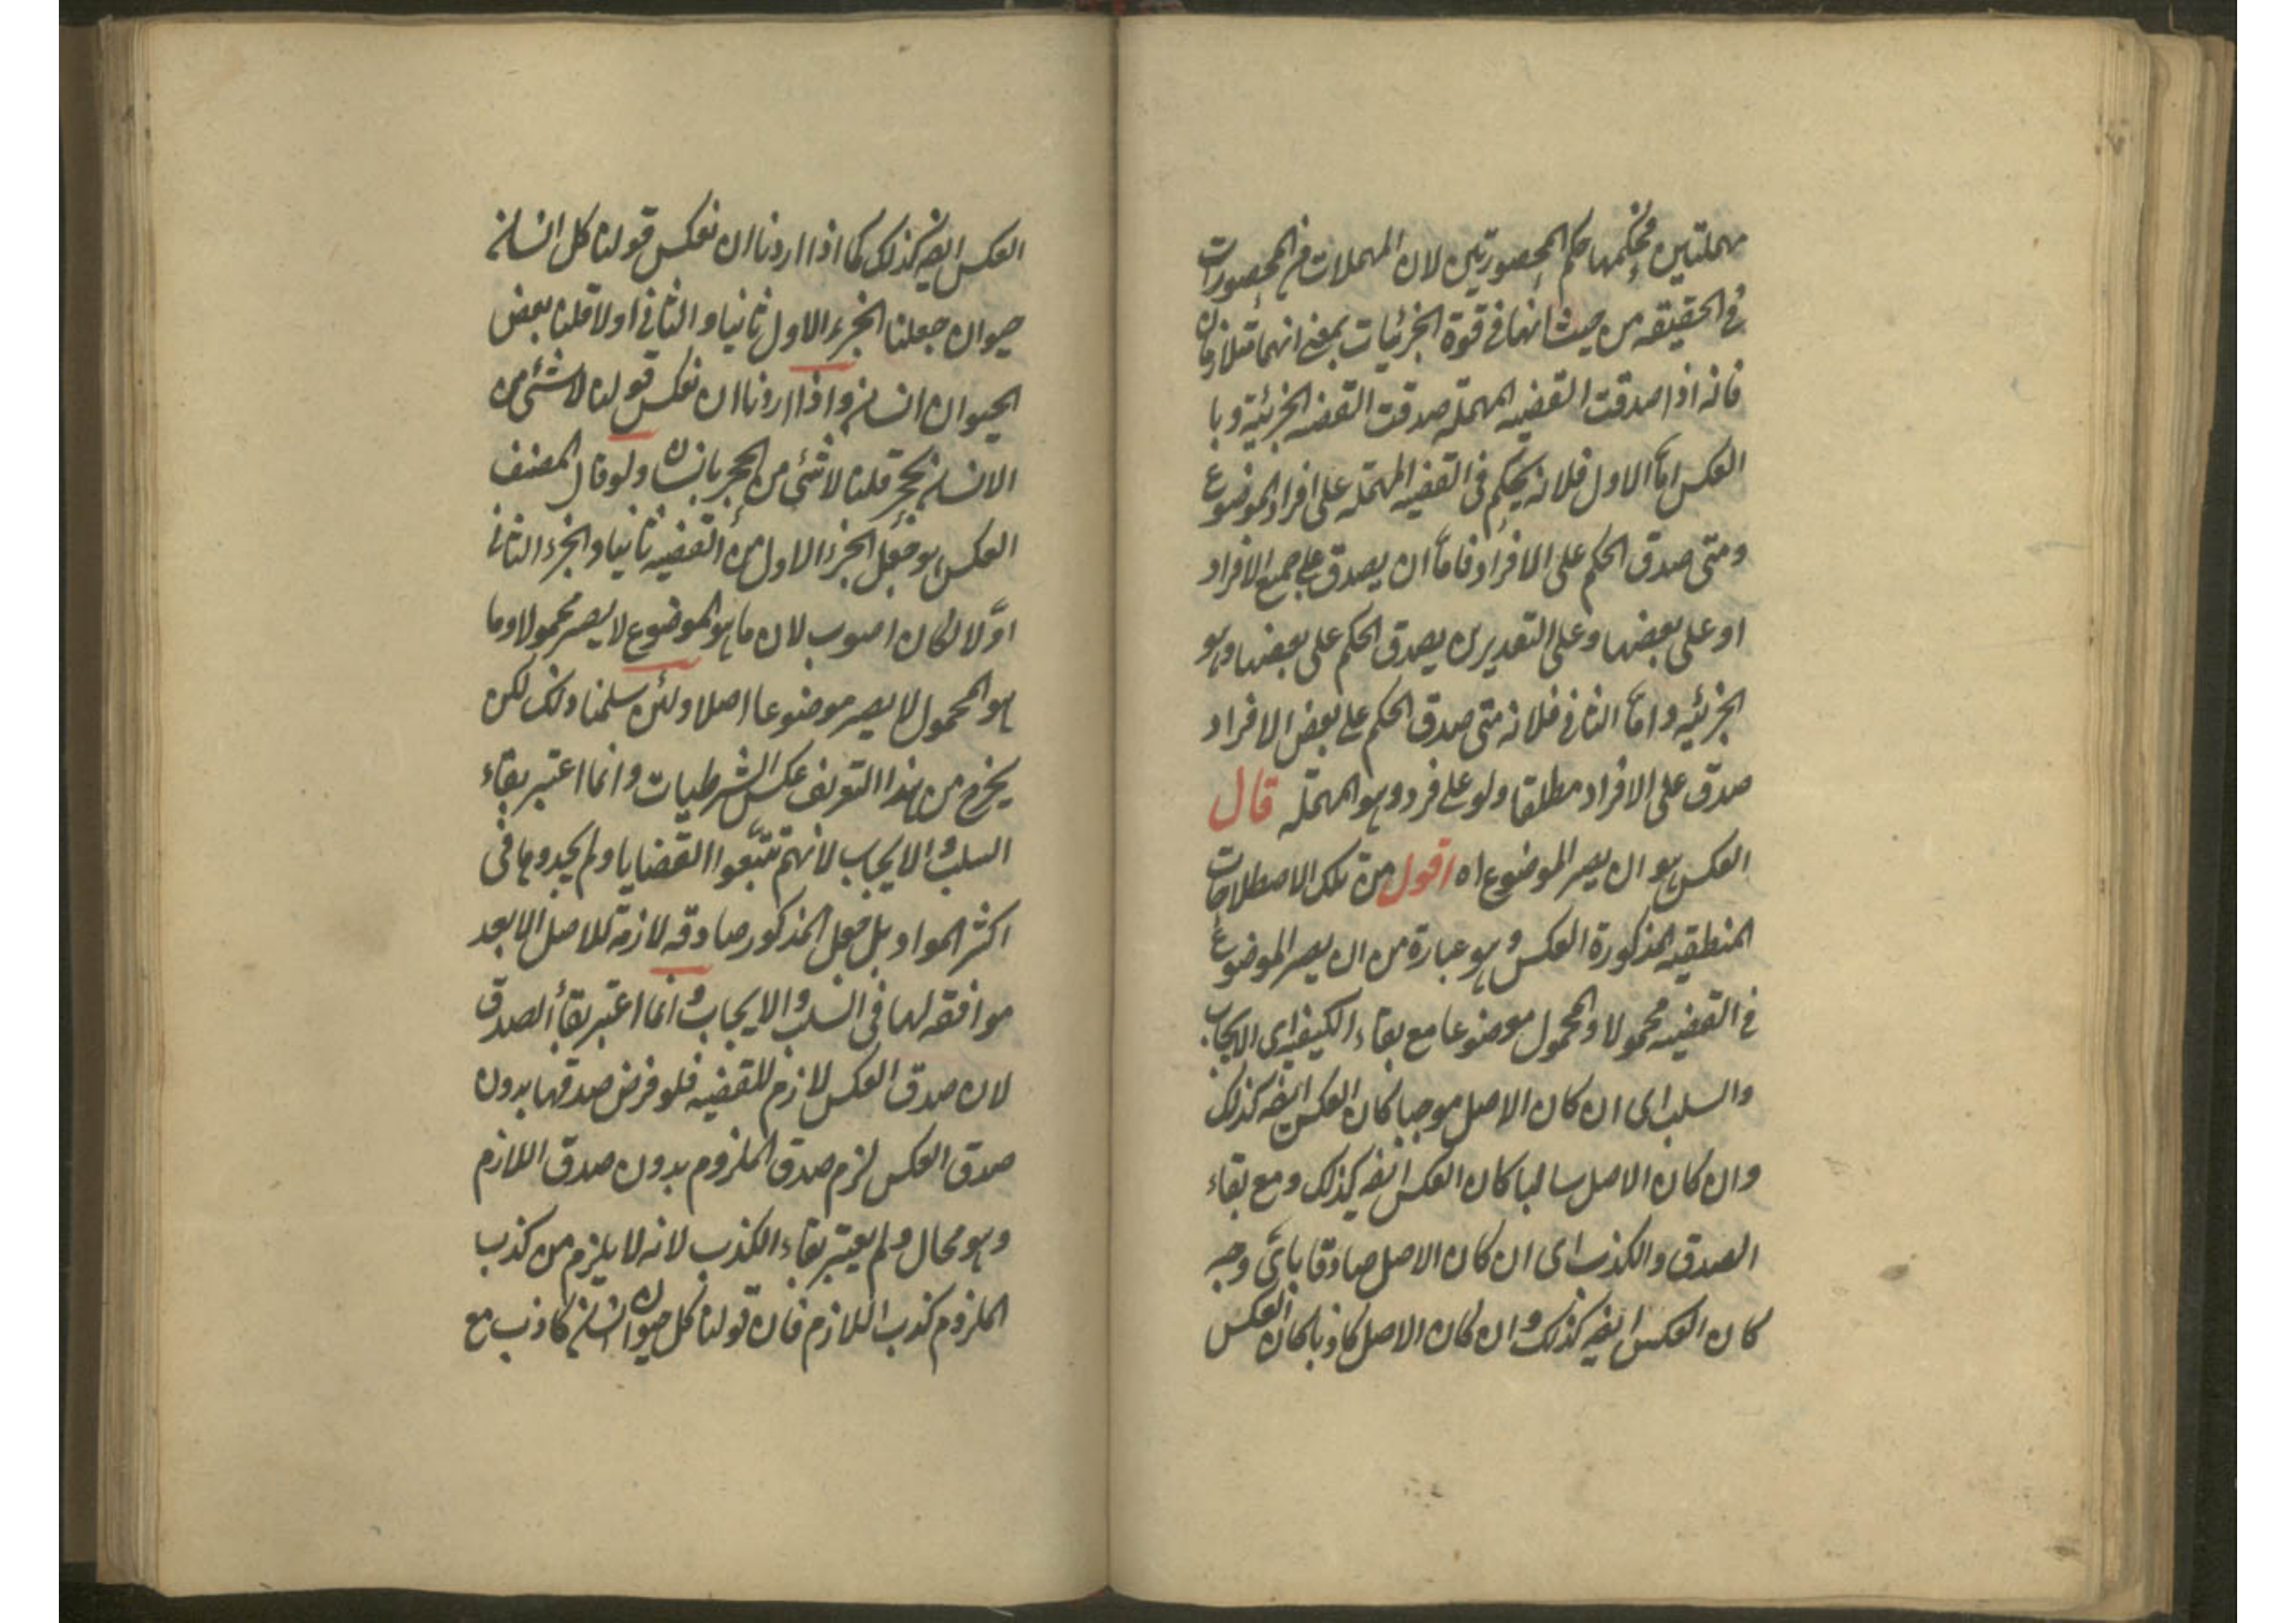 مهملتين فحكمها حكم المحصورتين لان المهملات من المحصورات
في الحقيقه من حيث انها في قوة الجزئيات بمعنى انهما متلازمان
فانه اذا صدقت القضيه المهمله صدقت القضيه الجزئية وبا
لعكس اما الاول فلانه يحكم في القضيه المهمله على افراد الموضوع
ومتى صدق الحكم على الافراد فاما ان يصدق على جميع الافراد
او على بعضها وعلى التقديرين يصدق الحكم على بعضها وهو
الجزئيه واما الثاني فلانه متى صدق الحكم على بعض الافراد
صدق على الافراد مطلقا ولو على فرد وهو المهمله قال
العكس هو ان يصير الموضوع اه اقول من تلك الاصطلاحات
المنطقيه المذكورة العكس وهو عبارة من ان يصير الموضوع
في القضيه محمولا والمحمول موضوعا مع بقاء الكيفيه اى الايجاب
والسلب اى ان كان الاصل موجبا كان العكس ايضه كذلك
وان كان الاصل سالبا كان العكس ايضه كذلك ومع بقاء
الصدق والكذب اى ان كان الاصل صادقا باىّ وجه
كان العكس ايضه كذلك وان كان الاصل كاذبا كان العكس
العكس ايضه كذلك كما اذا اردنا ان نعكس قولنا كل انسان
حيوان جعلنا الجزء الاول ثانيا والثاني اولا قلنا بعض
الحيوان انسان واذا اردنا ان نعكس قولنا لا شئ من
الانسان بحجر قلنا لا شئ من الحجر بانسان ولو قال المصنف
العكس هو جعل الجزء الاول من القضيه ثانيا والجزء الثاني
اوّلا لكان اصوب لان ما هو الموضوع لا يصير محمولا وما
هو المحمول لا يصير موضوعا اصلا ولئن سلمنا ذلك لكن
يخرج من هذا التعريف عكس الشرطيات وانما اعتبر بقاء
السلب والايجاب لانهم تتبّعوا القضايا ولم يجدوها في
اكثر المواد بل جعل المذكور صادقه لازمة للاصل الا بعد
موافقه لها في السلب والايجاب وانما اعتبر بقاء الصدق
لان صدق العكس لازم للقضيه فلو فرض صدقها بدون
صدق العكس لزم صدق الملزوم بدون صدق اللازم
وهو محال ولم يعتبر بقاء الكذب لانه لا يلزم من كذب
الملزوم كذب اللازم فان قولنا كل حيوان انسان كاذب مع